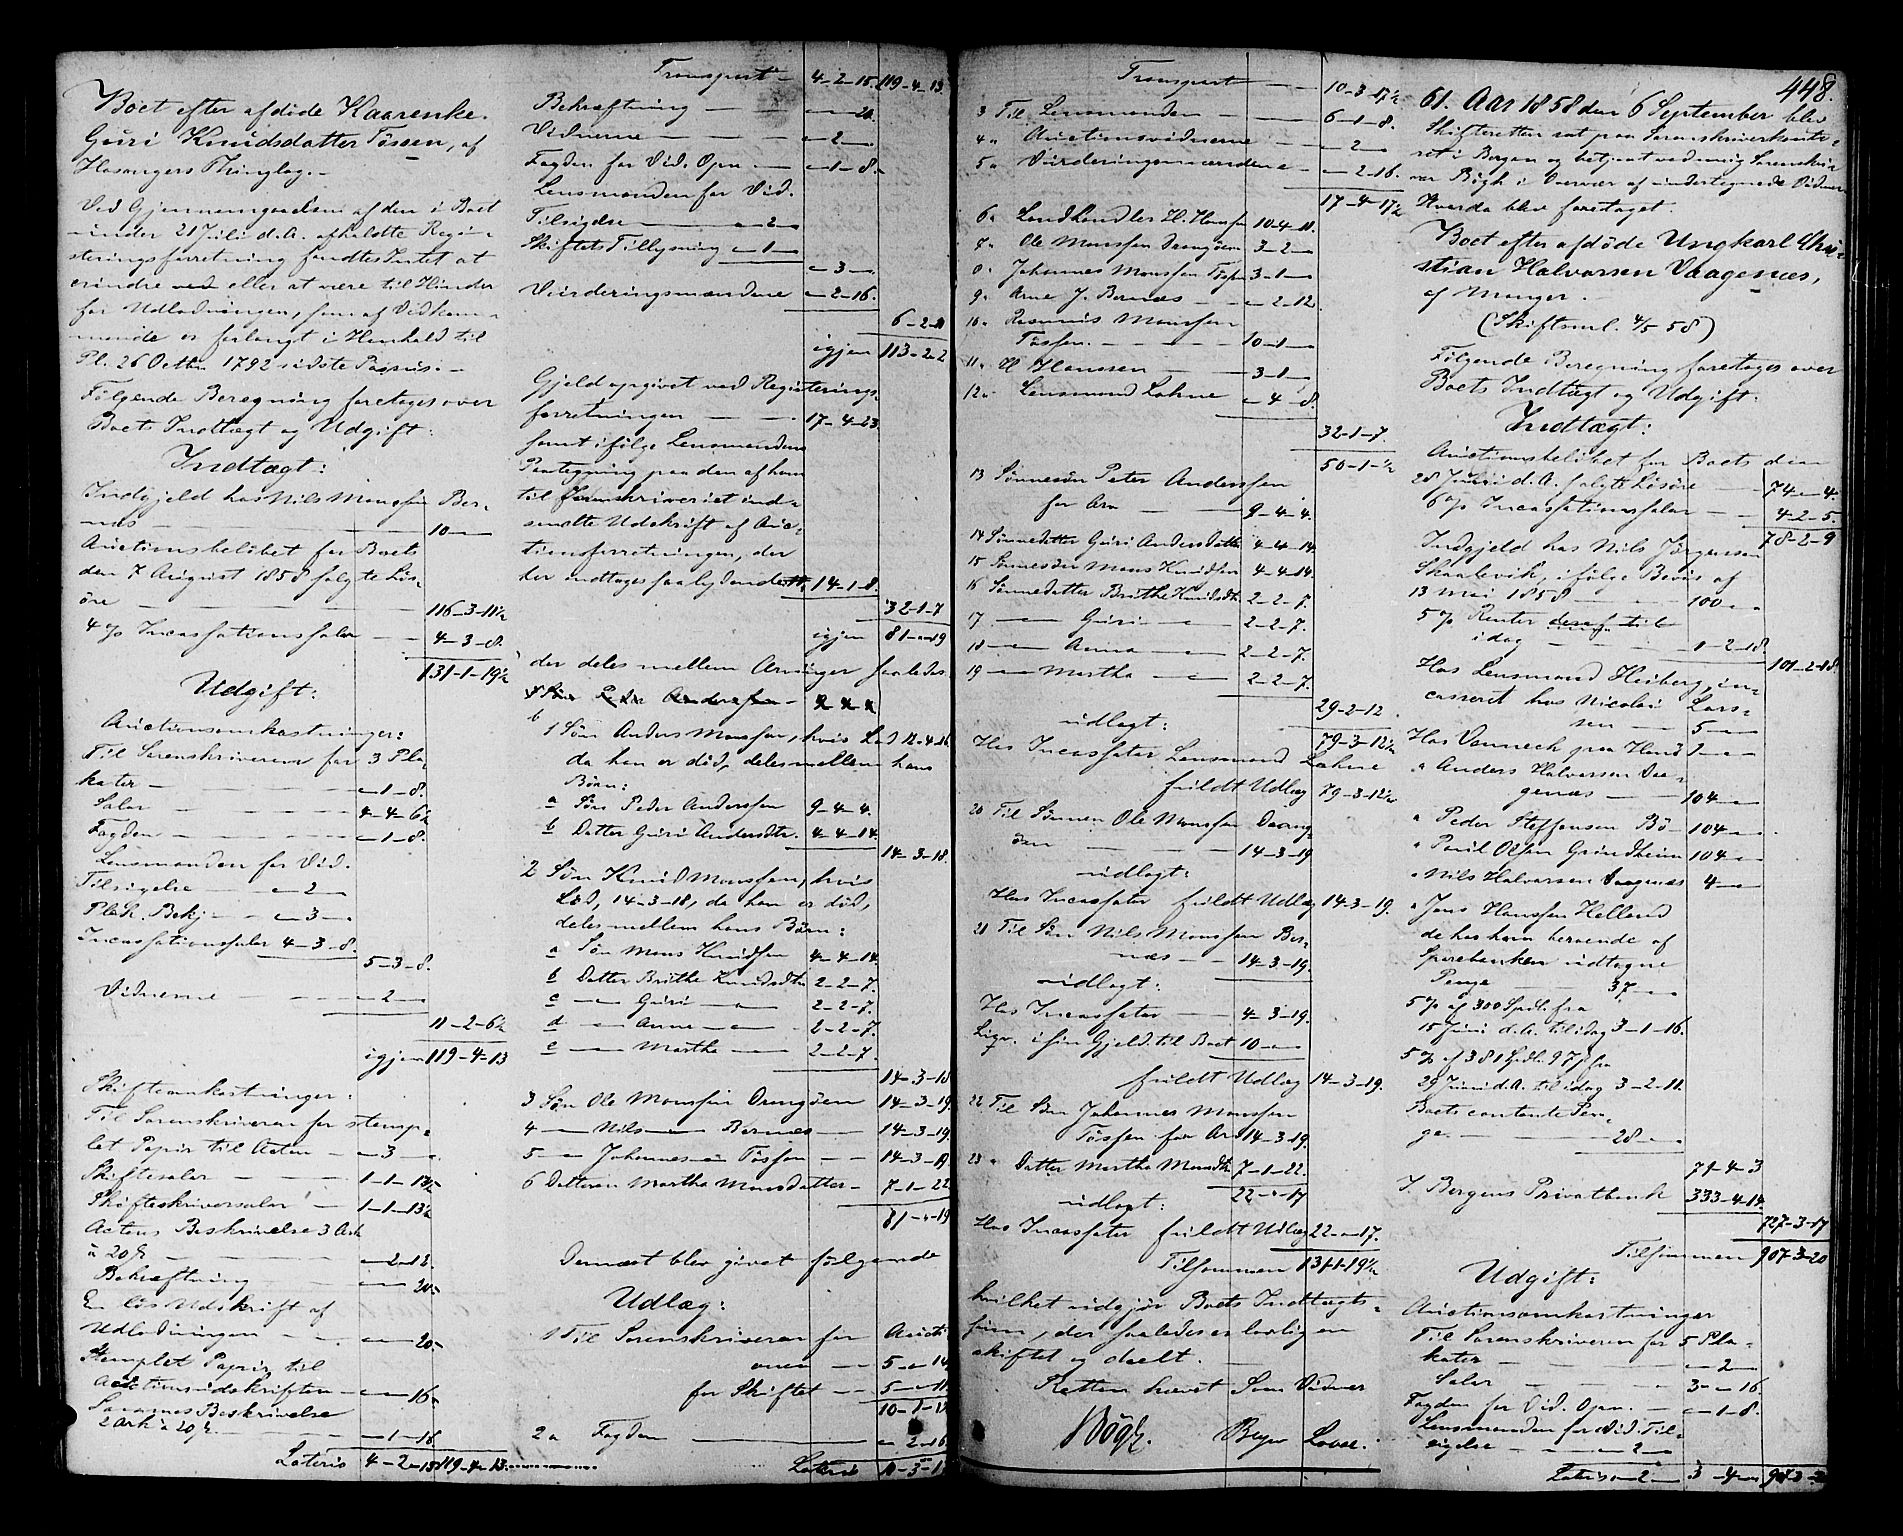 Boet efter afdöde Kaarenke.
Guri Knudsdatter Tössen, af
Hosangers Thinglag.
Ved Gjennemgaaelsen af den i Boet
under 21 Juli d. A. afholdte Regi-
steringsforretning fandtes Intet at
erindre ved eller at være til Hinder
for Udlodningen, som af Vedkom-
mende er forlangt i Henhold til
Pl. 26 Octbr 1792 sidste Passus.
Følgende Beregning foretages over
Boets Indtægt og Udgift:
Indtægt:
Indgjeld hos Nils Monssen Ber-
næs 10
Auctionsbelöbet for Boets
den 7 August 1858 solgte Lös-
öre 116-3-11½
4 % Incassationssalar 4-3-8.
131-1-19½
Udgift:
Auctionsomkostninger:
Til Sorenskriveren for 3 Pla-
kater 1-8.
Salar 4-4-6½
Fogden 1-8.
Lensmanden for Vid.
Tilsigelse 2
Plak. Bekj. 3
Incassationssalar 4-3-8.
5-3-8.
Vidnerne 2
11-2-6½
igjen 119-4-13
Skifteomkostninger:
Til Sorenskriveren for stemp-
let Papir til Acten 3
Skiftesalar 1-1-13½
Skifteskriversalar 1-1-13½
Actens Beskrivelse 3 Ark
à 20 ß 2-12.
Bekræftning 20.
En lös Udskrift af
Udlodningen 20.
Stemplet Papir til
Auctionsudskriften 16.
Sammes Beskrivelse
2 Ark à 20 ß. 1-16
Lateris 4-2-15 119-4-13.
Transport 4-2-15. 119-4-13.
Bekræftning 20.
Vidnerne 2
Fogden for Vid. Opn. 1-8.
Lensmanden for Vid.
Tilsigelse 2
Skiftets Tillysning 1
3
Vurderingsmændene 2-16.
igjen 113-2-2
Gjeld opgivet ved Registerings-
forretningen 17-4-23.
samt ifölge Lensmandens
Paategning paa den af ham
til Sorenskriveriet ind-
sendte Udskrift af Auc-
tionsforretningen, der
der indtages saalydende 14-1-8.
32-1-7
igjen 81-"-19
der deles mellem Arvinger saaledes
1 Sön Anders Monssen, hvis Lod
da han er död, deles mellem hans
Börn:
a Sön Peder Anderssen 9-4-4.
b Datter Guri Andersdtr. 4-4-14.
14-3-18.
2 Sön Knud Monssen, hvis
Lod, 14-3-18, da han er död,
deles mellem hans Börn:
a Sön Mons Knudsen 4-4-14.
b Datter Brithe Knudsdtr 2-2-7.
c Guri 2-2-7.
d Anne 2-2-7.
e Martha 2-2-7.
14-3-18
3 Sön Ole Monssen Drengöen 14-3-19.
4 Nils Bernæs 14-3-19.
5 Johannes Tössen 14-3-19
6 Datteren Martha Monsdatter 7-1-22
81-"-19
Dernæst blev givet fölgende
Udlæg:
1 Til Sorenskriveren for Aucti-
onen 5-"-14
for Skiftet 5-"-11
2 " Fogden 2-16
Lateris
Transport 10-3-17½
3 Til Lensmanden 6-1-8.
4 " Auctionsvidnerne 2
5 " Vurderingsmændene 2-16.
17-4-17½
6 " Landhandler H. Hanssen 10-4-11.
7 " Ole Monssen Drengöen 3-2
8 " Johannes Monssen Tössen 3-1
9 " Arne J. Bernæs 2-12
10 " Rasmus Monssen
Tössen. 10-1
11 " H Hanssen 3-1
12 " Lensmand Lohne 4-8.
32-1-7.
50-1-½
13 Sönnesön Peter Anderssen
for Arv 9-4-4.
14 Sönnedatter Guri Andersdatter 4-4-14.
15 Sönnesön Mons Knudsen 4-4-14.
16 Sönnedatter Brithe Knudsdtr 2-2-7.
17 Guri 2-2-7.
18 Anna 2-2-7.
19 Martha 2-2-7.
29-2-12.
79-3-12½
udlagt:
Hos Incassator Lensmand Lohne
fuldt Udlæg 79-3-12½
20 Til Sönnen Ole Monssen Dreng-
öen 14-3-19
udlagt:
Hos Incassator fuldt Udlæg 14-3-19.
21 Til Sön Nils Monssen Ber-
næs 14-3-19.
udlagt:
Hos Incassator 4-3-19.
Liqv. i sin Gjeld til Boet 10
fuldt Udlæg 14-3-19.
22 Til Sön Johannes Monssen
Tössen for Arv 14-3-19.
23 " Datter Martha Monsdtr 7-1-22.
22-"-17
udlagt:
Hos Incassator fuldt Udlæg 22-"-17.
Tilsammen 131-1-19½
hvilket udgjör Boets Indtægts-
sum, der saaledes er lovligen
skiftet og deelt.
Retten hævet Som Vidner
Bögh. Lover.
448.
61. Aar 1858 den 6 September blev
Skifteretten sat paa Sorenskriverkonto-
ret i Bergen og betjent ved mig Sorenskri-
ver Bögh i Overvær af undertegnede Vidner
Hvorda blev foretaget:
Boet efter afdöde Ungkarl Chri-
stian Halvorsen Vaagenæs,
af Manger.
(Skiftsml. 4/5 58)
Følgende Beregning foretages over
Boets Indtægt og Udgift:
Indtægt:
Auctionsbelöbet for Boets den
28 Juni d. A. solgte Lösöre 74-"-4.
6 % Incassationssalar 4-2-5.
78-2-9
Indgjeld hos Nils Jörgensen
Skaalevik, ifölge Bevis af
13 Mai 1858 100
5 % Renter deraf til
idag 1-2-18.
101-2-18.
Hos Lensmand Heiberg, in-
casseret hos Nicolai Lars-
sen 5
Hos Vennech paa Haand 1
" Anders Halvorsen Vaa-
genæs 104
" Peder Steffensen Bö 104
" Poul Olsen Grindheim 104
" Nils Halvorsen Vaagenæs 4
" Jens Hanssen Helland
de hos ham beroende af
Sparebanken udtagne
Penge 37
5 % af 300 Spdl. fra
15 Juni d. A. til idag 3-1-16.
5 % af 381 Spdl. 97 ß fra
29 Juni d. A. til idag 3-2-11.
Boets contante Pen-
ge. 28
I Bergens Privatbank 333-4-14.
727-3-17
Tilsammen 907-3-20
Udgift:
Auctionsomkostninger
Til Sorenskriveren for 5 Pla-
kater 2
Salar 3-"-16
Fogden for Vid. Opn. 1-8.
Lensmanden for Vid. Til-
sigelse 2
Lateris 2